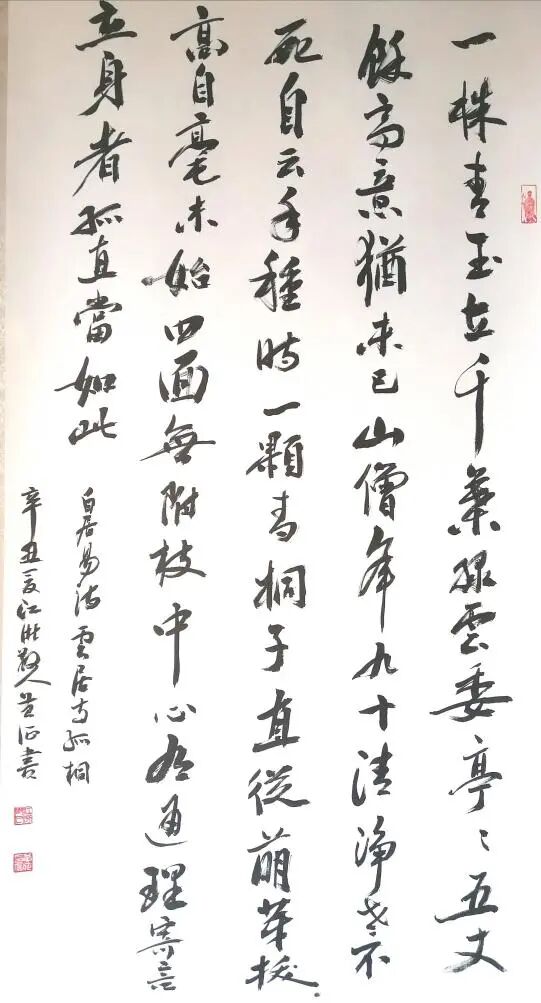 一株青玉立千葉綠雲委亭〻五丈
餘高意猶未已山僧年九十清淨老不
死自云手種時一顆青桐子直從萌芽拔
高自毫末始四面無附枝中心有通理寄言
立身者孤直當如此
白居易詩雲居寺孤桐
辛丑夏江洲散人書